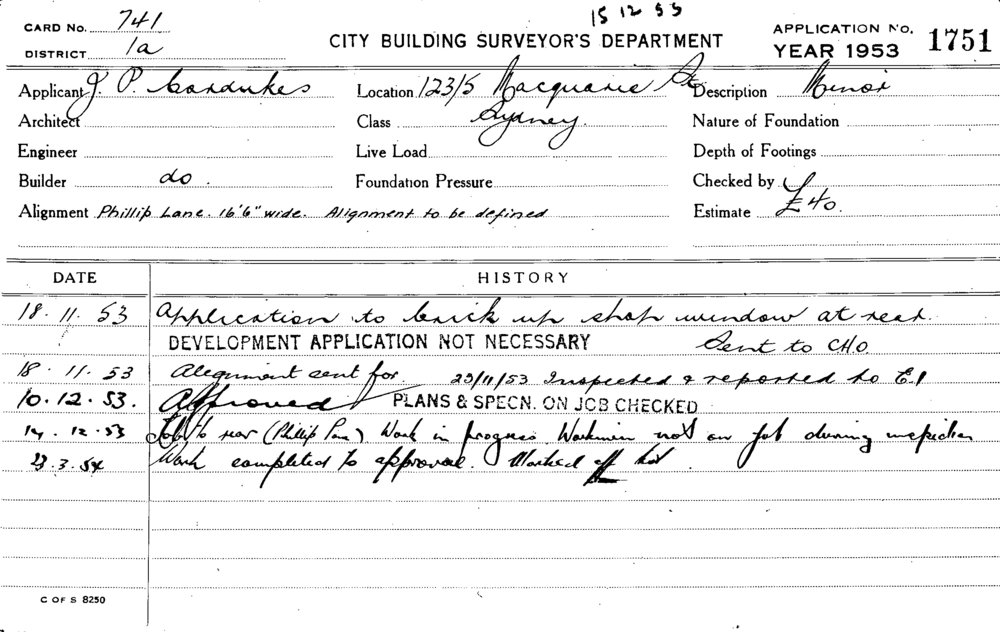 15 12 53
CARD No. 741
DISTRICT 1a
CITY BUILDING SURVEYOR'S DEPARTMENT
APPLICATION No. 1751
YEAR 1953
Applicant J. P. Location 123/5 Macquarie St Description Minor
Architect Class Sydney. Nature of Foundation
Engineer Live Load Depth of Footings
Builder do. Foundation Pressure Checked by
Alignment Phillip Lane. 16'6" wide. Alignment to be defined Estimate £40.
DATE HISTORY
18.11.53 Application to brick up shop window at rear.
DEVELOPMENT APPLICATION NOT NECESSARY Sent to CHO.
18.11.53 Alignment sent for 23/11/53 Inspected & reported to E.1
10.12.53. Approved PLANS & SPECN. ON JOB CHECKED
14.12.53 to rear (Phillip Lane). Work in progress. Workmen not on job during inspection
23.3.54 Work completed to approval. Marked off list
C OF S 8250